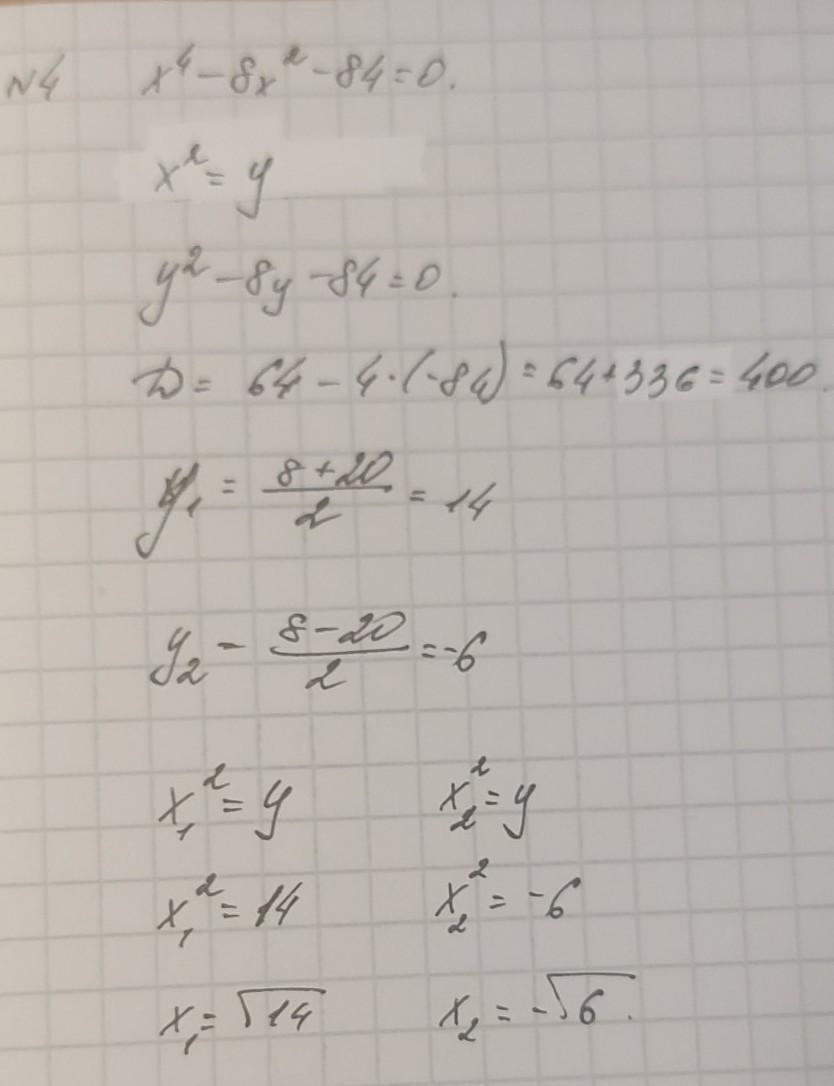 N4 x⁴ - 8x² - 84 = 0.
x² = y
y² - 8y - 84 = 0.
D = 64 - 4·(-84) = 64 + 336 = 400.
y₁ = (8 + 20)/2 = 14
y₂ - (8 - 20)/2 = -6
x₁² = y x₂² = y
x₁² = 14 x₂² = -6
x₁ = √14 x₂ = -√6.